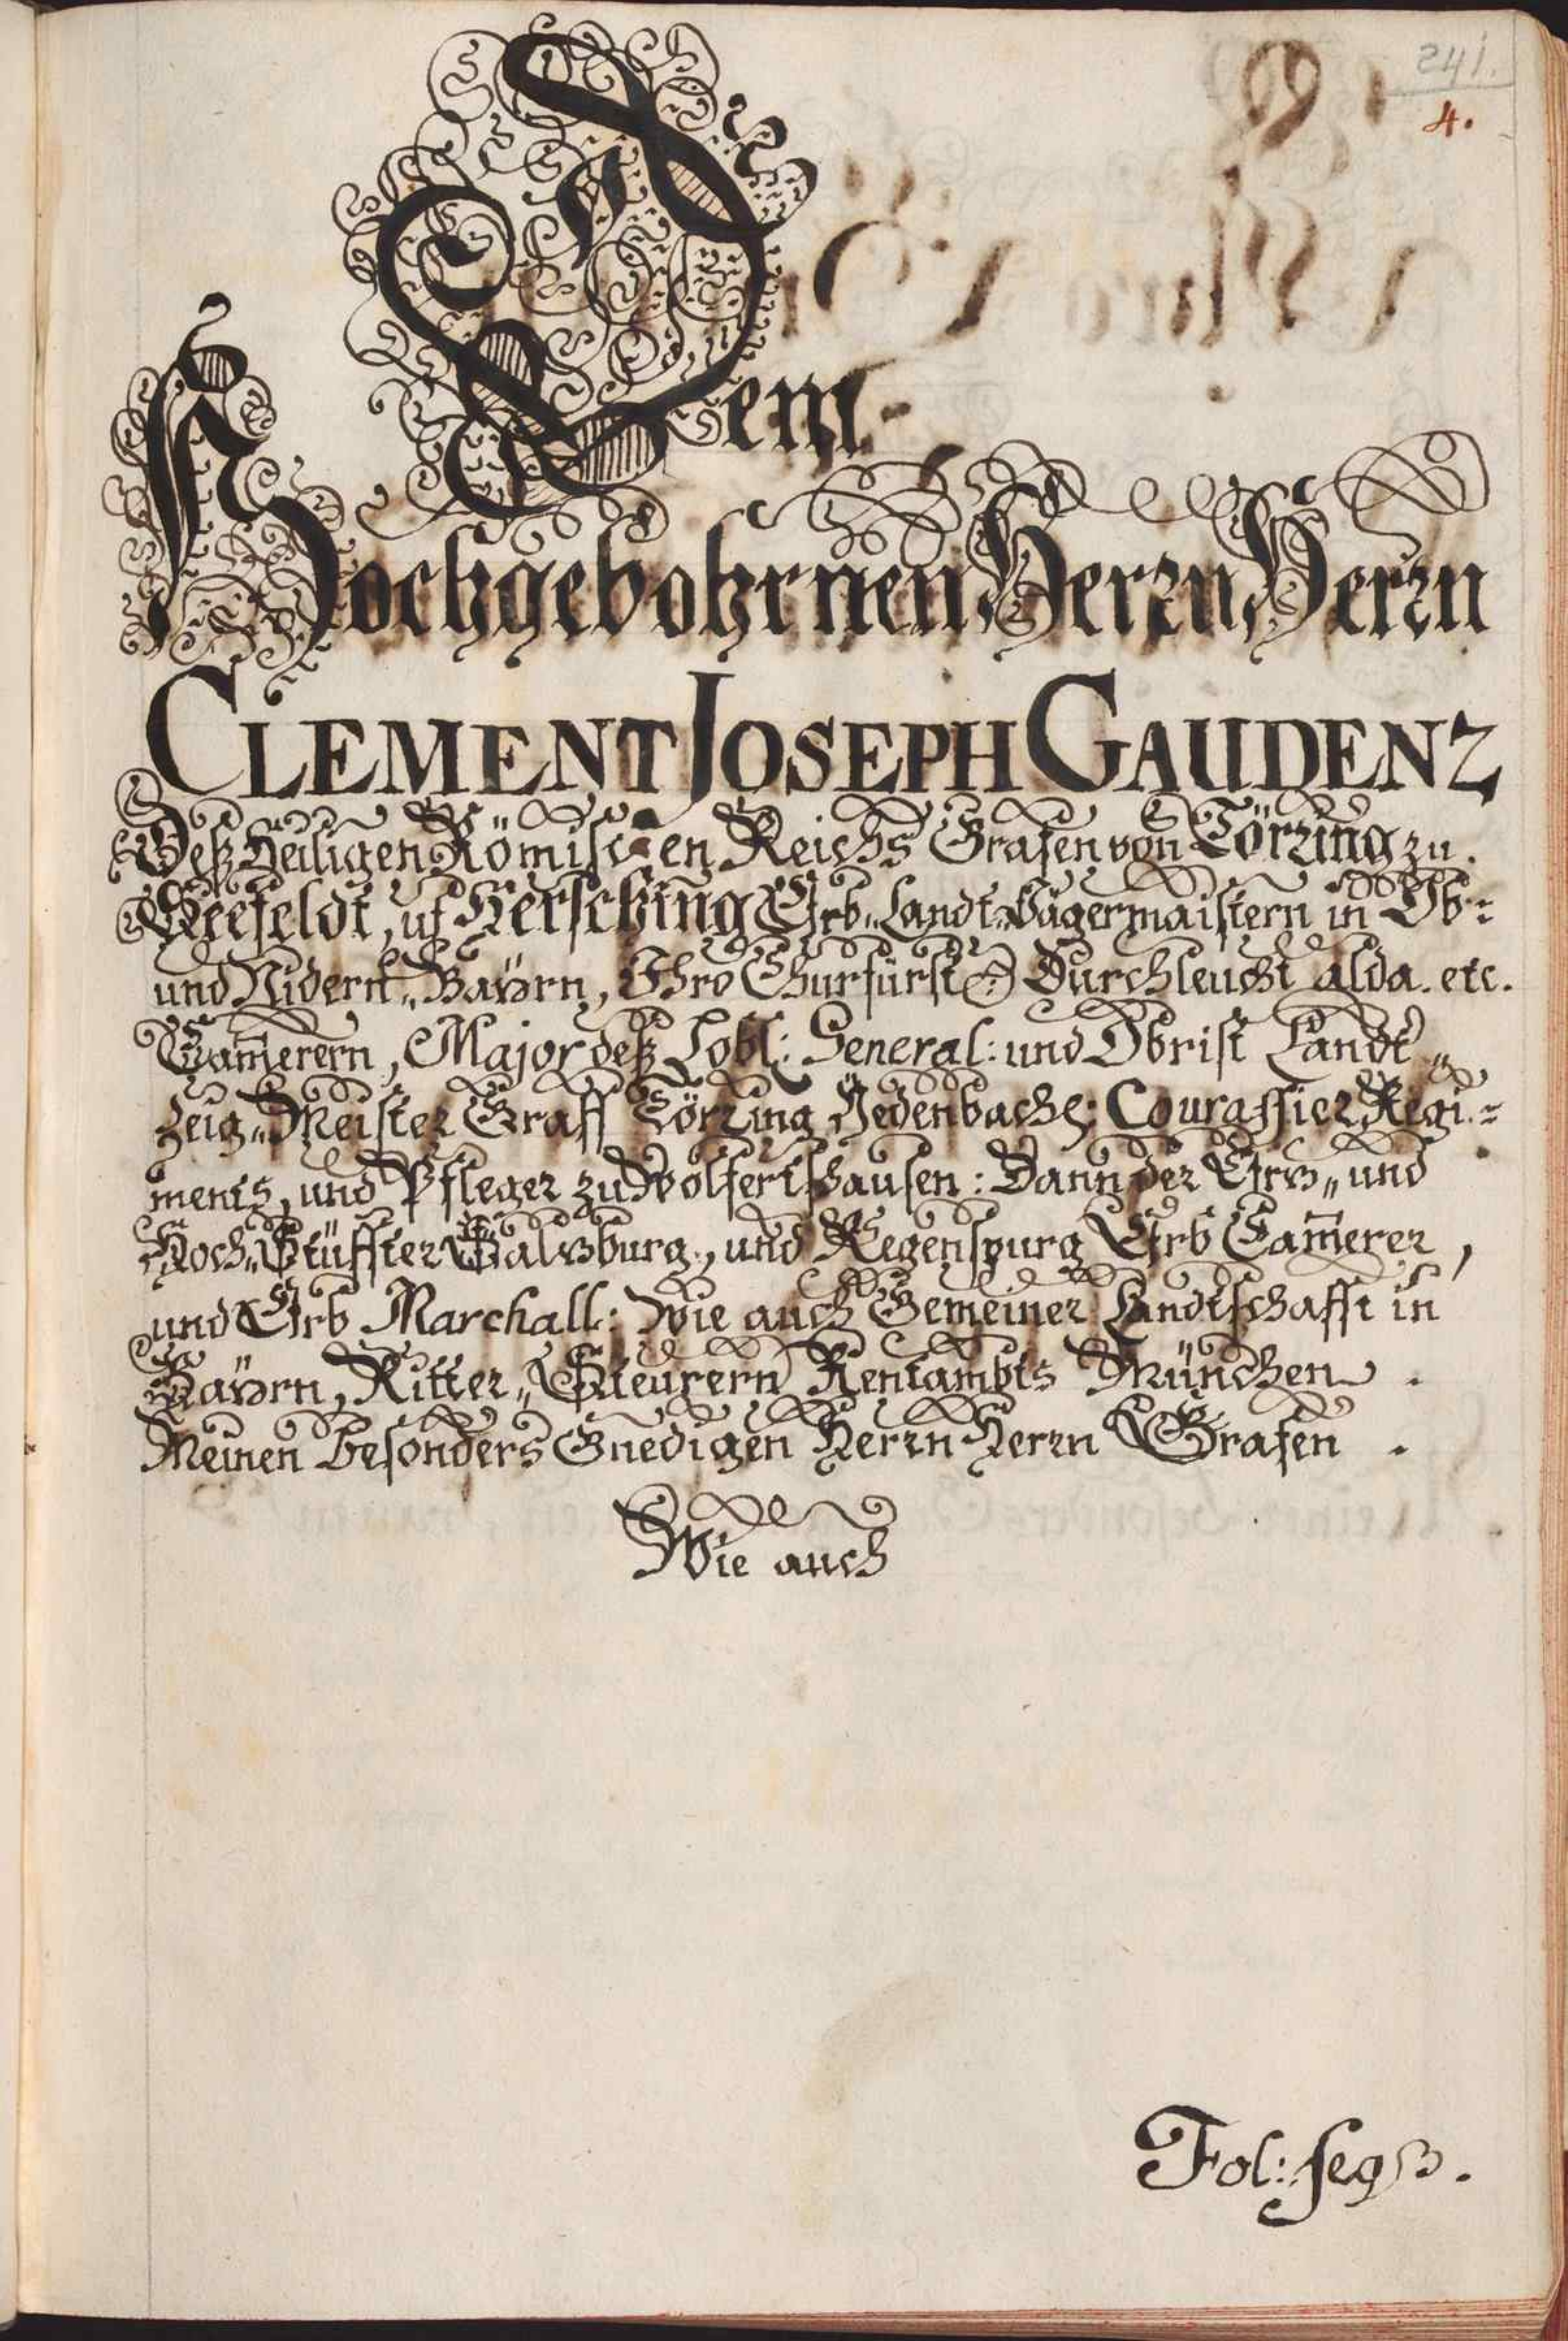 241.
4.
Dem
Hochgebohrnen Herrn Herrn
CLEMENT JOSEPH GAUDENZ
Deß Heiligen Römischen Reichs Grafen von Törring zu
Seefeldt, uf Hersching Erb„Landt„Jägermaistern in Ob:=
und Nidern„Bayrn, Ihro Churfürstl: Durchleucht alda. etc.
Camerern, Major deß Lobl: General: und Obrist Landt„
Zeig„Meister Graff Törring Jedenbach: Courassier Regi=
ments, und Pfleger zu Wolfertshausen: Dann der Ertz„und
Hoch„Stüffter Saltzburg„ und Regenspurg Erb Camerer,
und Erb Marchall: Wie auch Gemeiner Landtschafft in
Bayrn, Ritter„Steurern Rentambts München.
Meinen besonders Gnedigen Herrn Herrn Grafen.
Wie auch
Fol: seq